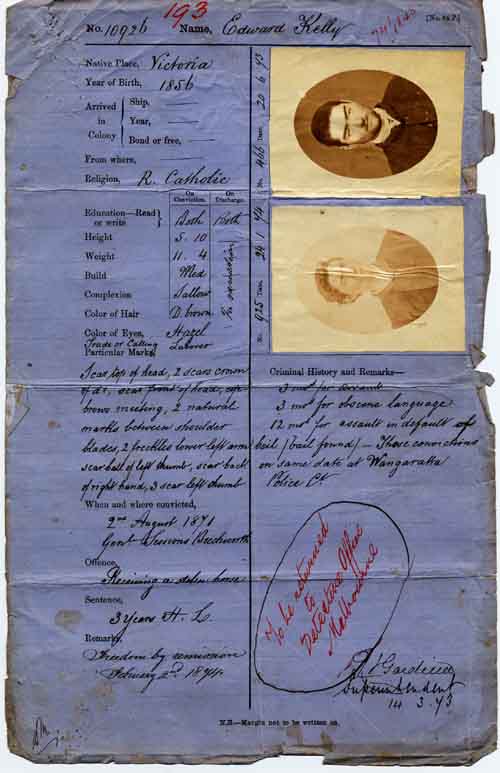 193
No. 10926 Name, Edward Kelly
Native Place, Victoria
Year of Birth, 1856
Arrived in Colony
Ship,
Year,
Bond or free,
From where,
Religion, R. Catholic
On Conviction. On Discharge.
Education—Read or write Both Both
Height 5. 10
Weight 11. 4
Build Med
Complexion Sallow
Color of Hair D. brown
Color of Eyes, Hazel
Trade or Calling Laborer
Particular Marks,
Scar top of head, 2 scars crown
of do, scar front of head, eye
brows meeting, 2 natural
marks between shoulder
blades, 2 freckles lower left arm
scar ball of left thumb, scar back
of right hand, 3 scar left thumb
When and where convicted,
2nd August 1871
Genl Sessions Beechworth
Offence,
Receiving a stolen horse
Sentence,
3 Years H. L.
Remarks,
Freedom by remission
February 2d 1874.
No. 466 Date, 20 6 73
No. 925 Date, 24 1 74
Criminal History and Remarks—
3 mos for assault
3 mos for obscene language
12 mos for assault in default of
bail (bail found) — These convictions
on same date at Wangaratta
Police Ct.
To be returned
to
Detective Office
Melbourne
Superintendent
14 3. 73
N.B.—Margin not to be written on.